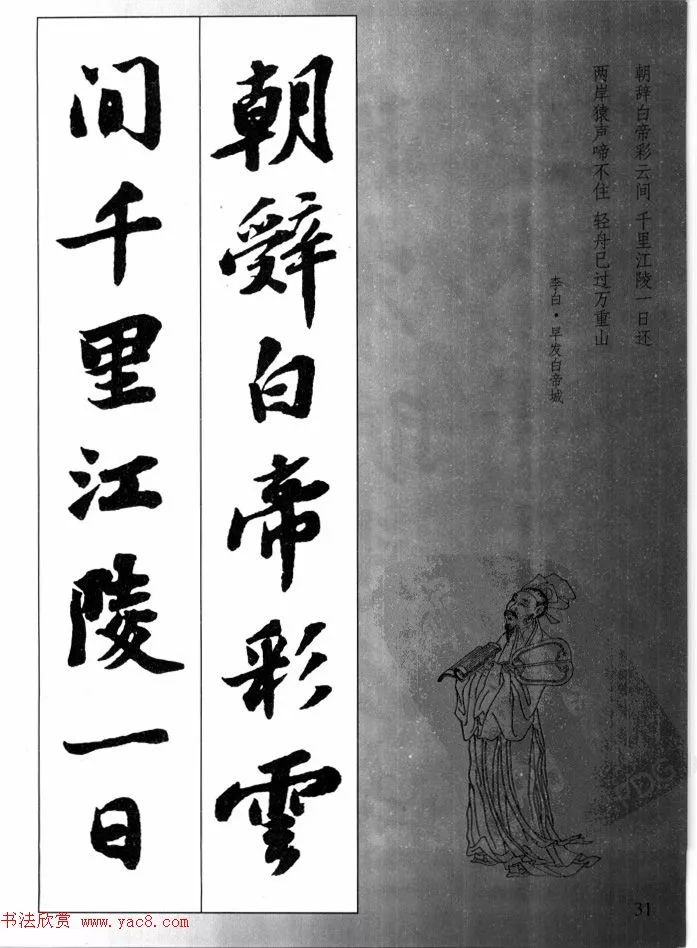 朝辞白帝彩云间 千里江陵一日还
两岸猿声啼不住 轻舟已过万重山
李白·早发白帝城
朝辭白帝彩雲
间千里江陵一日
PDG
31
书法欣赏 www.yac8.com